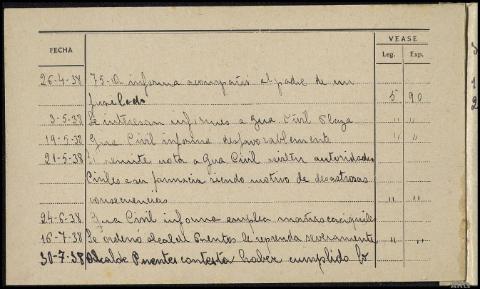 FECHA
VEASE
Leg. Exp.
26-4-38 75-A informa acompañó al padre de un
fusilado 5 90
3-5-38 Se interesan informes a Gua Civil Plaza " "
19-5-38 Gua Civil informa desfavorablemente " "
21-5-38 Se remite nota a Gua Civil autoridades
Civiles a su farmacia siendo motivo de desastrosas
consecuencias " "
24-6-38 Gua Civil informa emplea
16-7-38 Se ordena Alcalde Puentes le reprenda severamente " "
30-7-38 Alcalde Puentes contesta haber cumplido lo